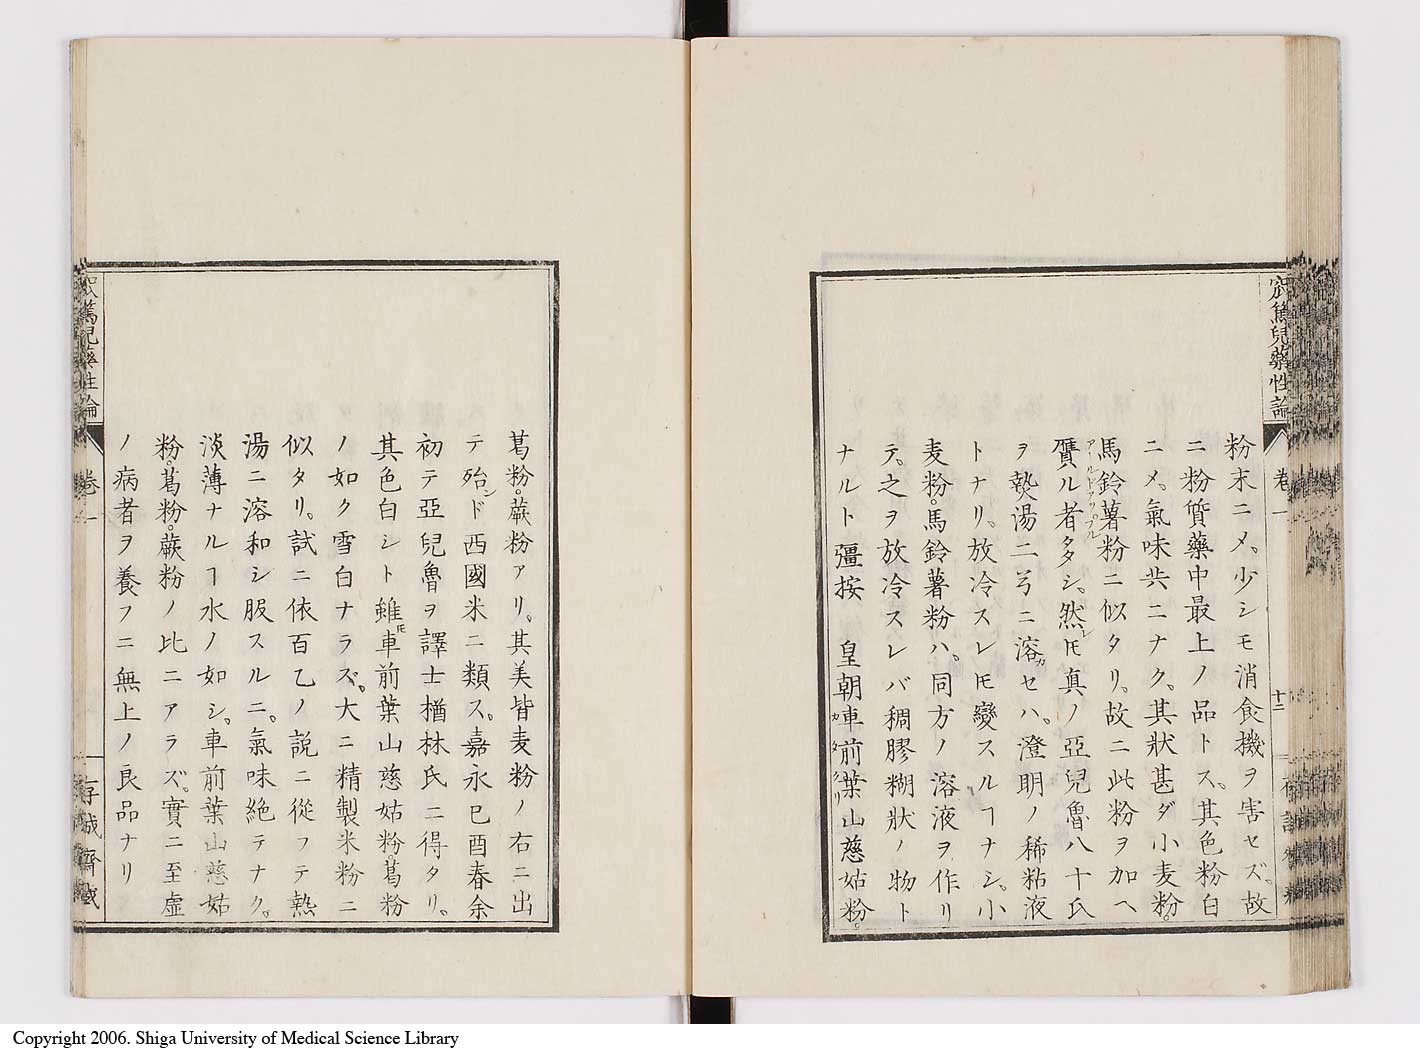 窊篤兒藥性論
卷一
十二
粉末ニ〆。少シモ消食機ヲ害セズ。故
ニ粉質藥中最上ノ品トス。其色粉白
ニ〆。氣味共ニナク。其狀甚ダ小麦粉。
馬鈴薯粉ニ似タリ。故ニ此粉ヲ加ヘ
アールドアップル
贋ル者タタシ。然レ𪜈真ノ亞兒魯八十氏
ヲ𤍠湯二弓ニ溶カセハ。澄明ノ稀粘液
トナリ。放冷スレ𪜈變スルヿナシ。小
麦粉。馬鈴薯粉ハ。同方ノ溶液ヲ作リ
テ。之ヲ放冷スレバ稠膠糊狀ノ物ト
ナルト 彊按 皇朝車前葉山慈姑粉。
カタクリ
葛粉。蕨粉アリ。其美皆麦粉ノ右ニ出
テ殆ンド西國米ニ類ス。嘉永己酉春余
初テ亞兒魯ヲ譯士楢林氏ニ得タリ。
其色白シト雖𪜈車前葉山慈姑粉。葛粉
ノ如ク雪白ナラズ。大ニ精製米粉ニ
似タリ。試ニ依百乙ノ說ニ從フテ熱
湯ニ溶和シ服スルニ。氣味絶テナク。
淡薄ナルヿ水ノ如シ。車前葉山慈姑
粉。葛粉。蕨粉ノ比ニアラズ。實ニ至虛
ノ病者ヲ養フニ無上ノ良品ナリ
篤兒藥性論
卷一
存誠齋藏
Copyright 2006. Shiga University of Medical Science Library